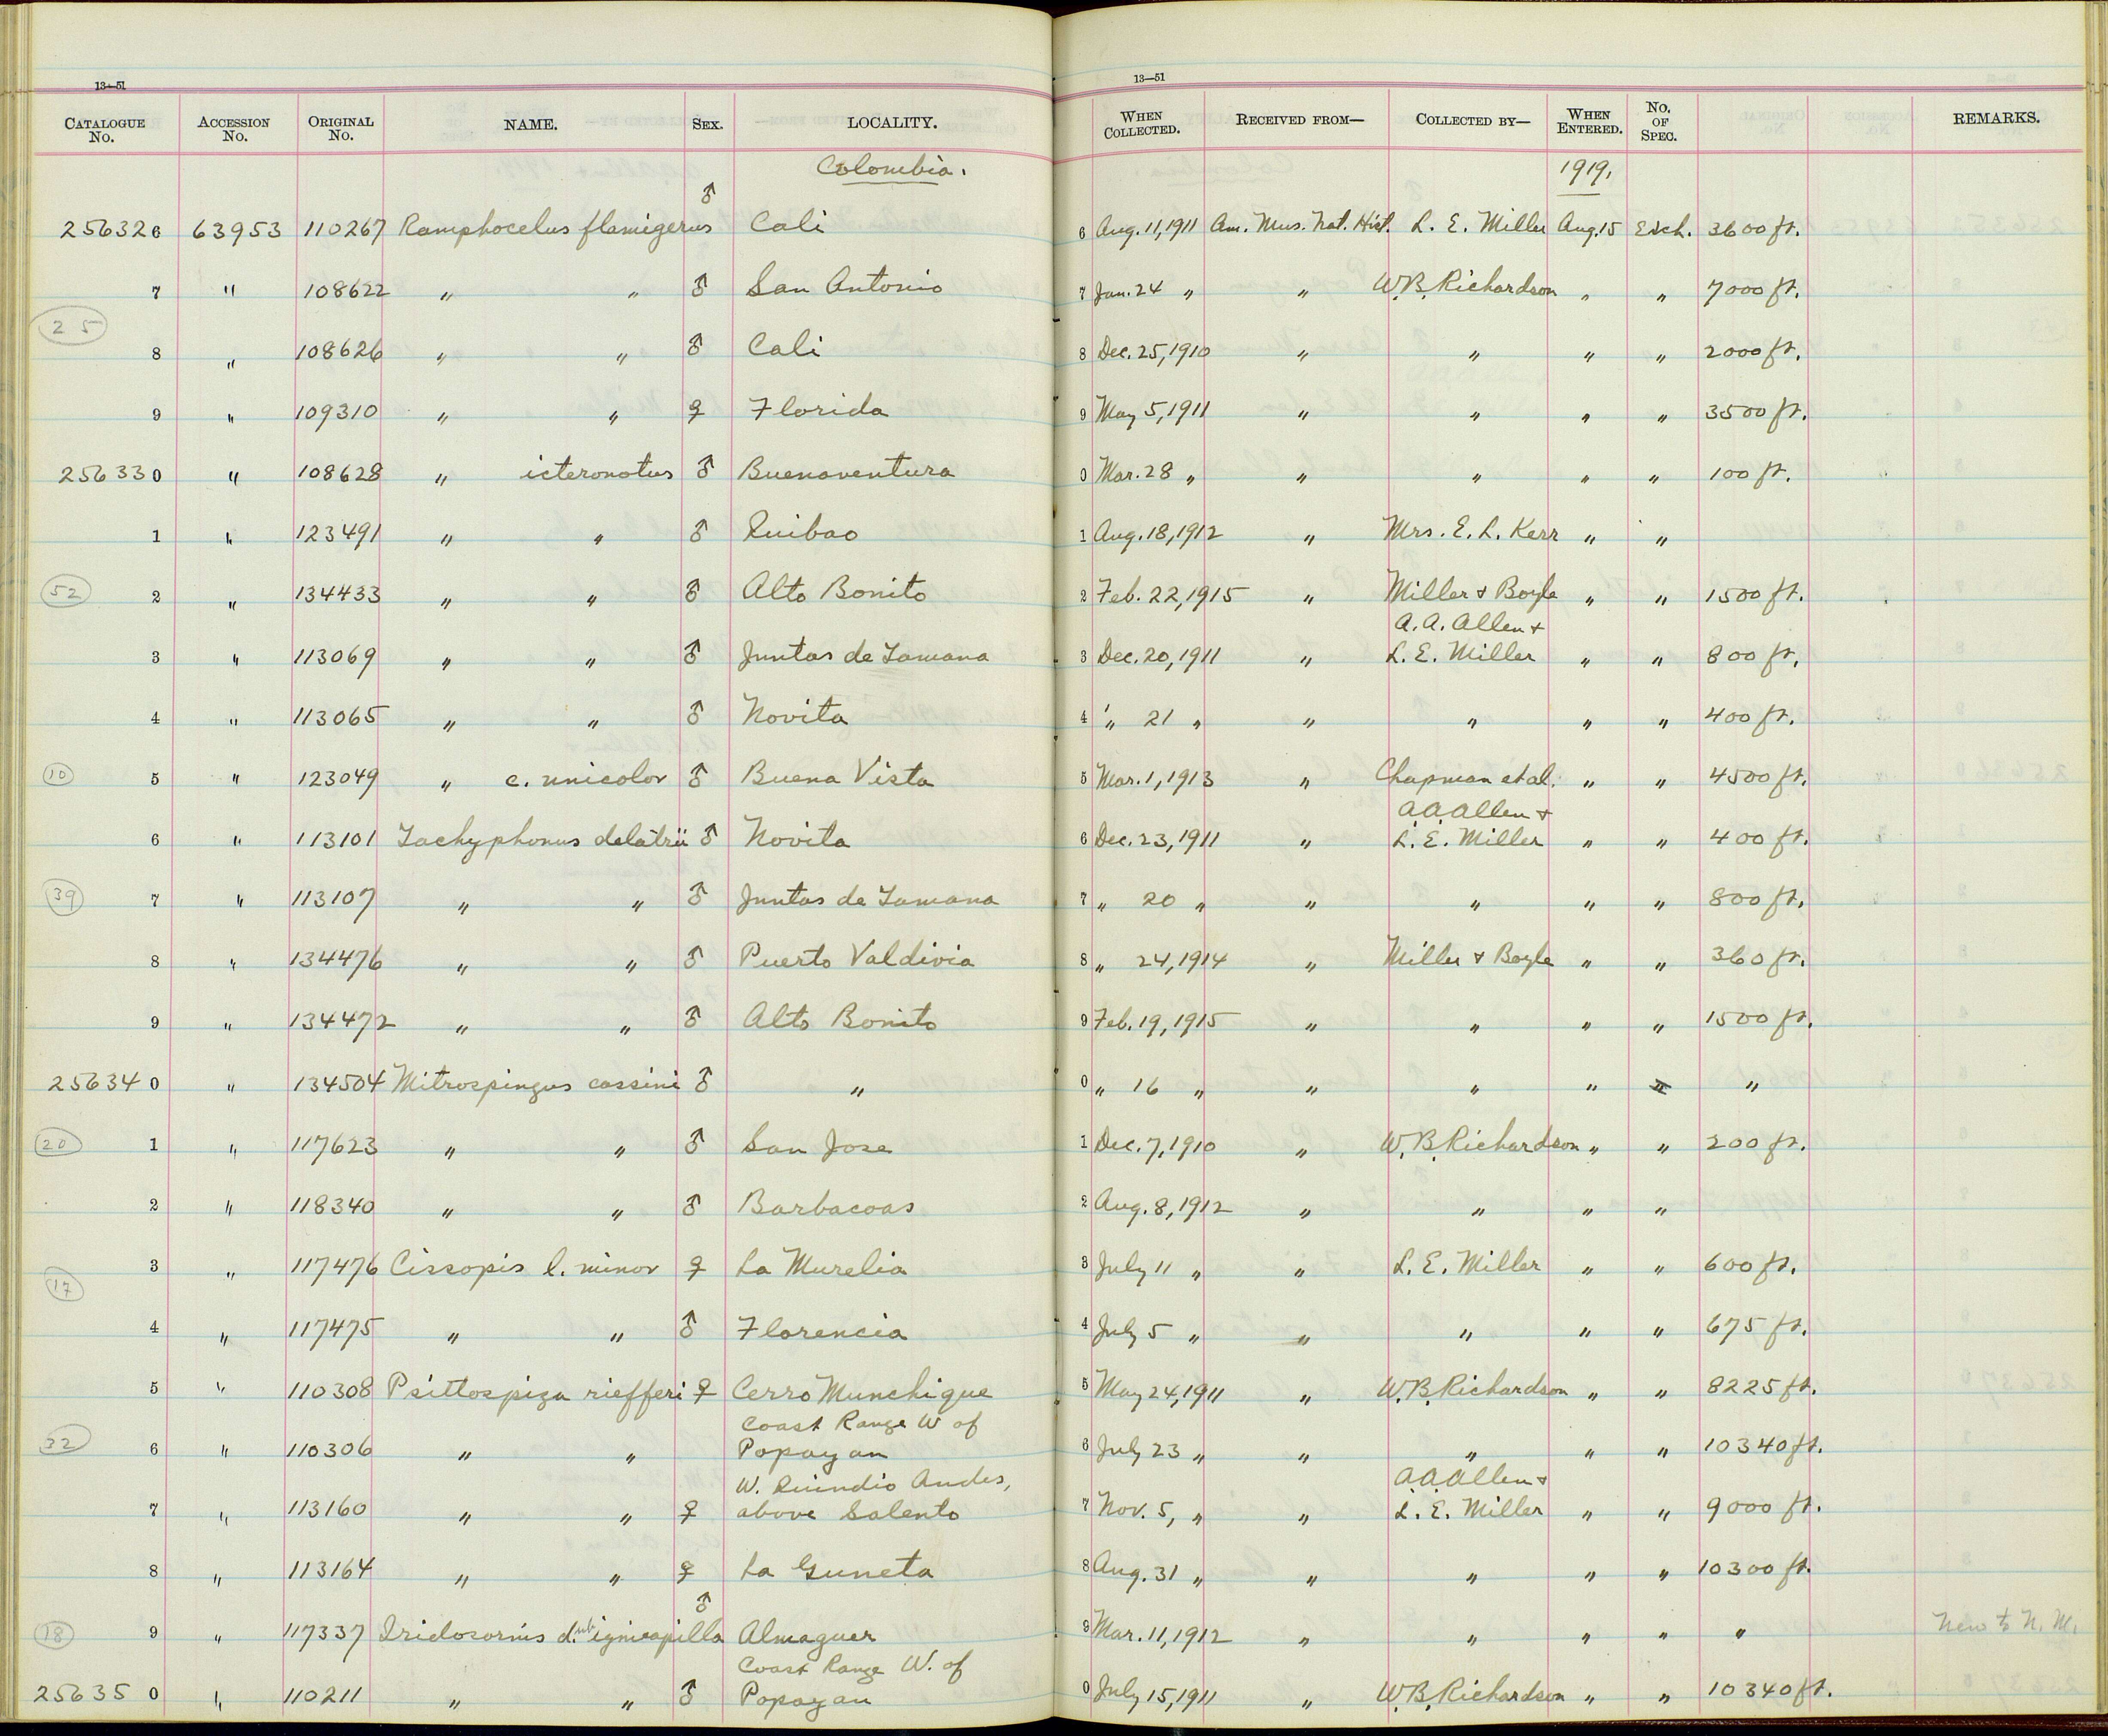 13—51 13—51
CATALOGUE No. ACCESSION No. ORIGINAL No. NAME. SEX. LOCALITY. WHEN COLLECTED. RECEIVED FROM— COLLECTED BY— WHEN ENTERED. No. OF SPEC. REMARKS.
Colombia. 1919.
256326 63953 110267 Ramphocelus flamigerus ♂ Cali 6 Aug. 11, 1911 Am. Mus. Nat. Hist. L. E. Miller Aug. 15 Exch. 3600 ft.
7 " 108622 " " ♂ San Antonio 7 Jan. 24 " " W. B. Richardson " " 7000 ft.
25
8 " 108626 " " ♂ Cali 8 Dec. 25, 1910 " " " " 2000 ft.
9 " 109310 " " ♀ Florida 9 May 5, 1911 " " " " 3500 ft.
256330 " 108628 " icteronotus ♂ Buenaventura 0 Mar. 28 " " " " " 100 ft.
1 " 123491 " " ♂ Quibao 1 Aug. 18, 1912 " Mrs. E. L. Kerr " "
52 2 " 134433 " " ♂ Alto Bonito 2 Feb. 22, 1915 " Miller & Boyle " " 1500 ft.
A. A. Allen &
3 " 113069 " " ♂ Juntas de Tamana 3 Dec. 20, 1911 " L. E. Miller " " 800 ft.
4 " 113065 " " ♂ Novita 4 " 21 " " " " " 400 ft.
10 5 " 123049 " c. unicolor ♂ Buena Vista 5 Mar. 1, 1913 " Chapman et al. " " 4500 ft.
A. A. Allen &
6 " 113101 Tachyphonus delatrii ♂ Novita 6 Dec. 23, 1911 " L. E. Miller " " 400 ft.
39 7 " 113107 " " ♂ Juntas de Tamana 7 " 20 " " " " " 800 ft.
8 " 134476 " " ♂ Puerto Valdivia 8 " 24, 1914 " Miller & Boyle " " 360 ft.
9 " 134472 " " ♂ Alto Bonito 9 Feb. 19, 1915 " " " " 1500 ft.
256340 " 134504 Mitrospingus cassini ♂ " 0 " 16 " " " " " "
20 1 " 117623 " " ♂ San Jose 1 Dec. 7, 1910 " W. B. Richardson " " 200 ft.
2 " 118340 " " ♂ Barbacoas 2 Aug. 8, 1912 " " " "
3 " 117476 Cissopis l. minor ♀ La Murelia 3 July 11 " " L. E. Miller " " 600 ft.
17
4 " 117475 " " ♂ Florencia 4 July 5 " " " " " 675 ft.
5 " 110308 Psittospiza riefferi ♀ Cerro Munchique 5 May 24, 1911 " W. B. Richardson " " 8225 ft.
Coast Range W of
32 6 " 110306 " " Popayan 6 July 23 " " " " " 10340 ft.
W. Quindio Andes, A. A. Allen &
7 " 113160 " " ♀ above Salento 7 Nov. 5, " " L. E. Miller " " 9000 ft.
8 " 113164 " " ♀ La Guneta 8 Aug. 31 " " " " " 10300 ft.
18 9 " 117337 Iridosornis d. ignicapilla ♂ Almaguer 9 Mar. 11, 1912 " " " " " New to N. M.
Coast Range W. of
256350 " 110211 " " ♂ Popayan 0 July 15, 1911 " W. B. Richardson " " 10340 ft.